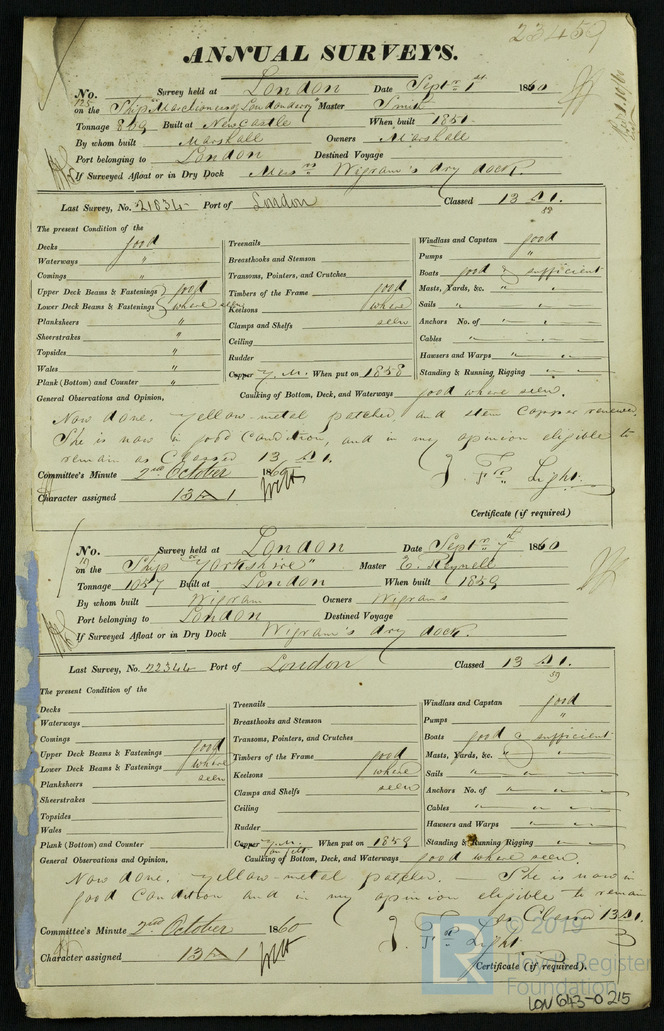 23459
ANNUAL SURVEYS.
No. 125 Survey held at London Date Septr 1st 1860
on the Ship "Marchioness of Londonderry" Master Smith
Tonnage 859 Built at Newcastle When built 1851
By whom built Marshall Owners Marshall
Port belonging to London Destined Voyage
If Surveyed Afloat or in Dry Dock Messrs Wigram's dry dock.
Last Survey, No. 21034 Port of London Classed 13 A 1.
The present Condition of the
Decks good
Waterways "
Comings "
Upper Deck Beams & Fastenings good
Lower Deck Beams & Fastenings where seen
Planksheers "
Sheerstrakes "
Topsides "
Wales "
Plank (Bottom) and Counter "
Treenails
Breasthooks and Stemson
Transoms, Pointers, and Crutches
Timbers of the Frame good
Keelsons where
Clamps and Shelfs seen
Ceiling
Rudder
Copper Y.M. When put on 1858
Windlass and Capstan good
Pumps "
Boats good & sufficient
Masts, Yards, &c. " "
Sails " "
Anchors No. of " "
Cables " "
Hawsers and Warps " "
Standing & Running Rigging " "
General Observations and Opinion, Caulking of Bottom, Deck, and Waterways good where seen.
Now done. Yellow-metal patched, and stem copper renewed.
She is now in good condition, and in my opinion eligible to
remain as Classed 13 A 1.
Committee's Minute 2nd October 1860
Light.
Character assigned 13 A 1
Certificate (if required)
No. 117 Survey held at London Date Septr 7th 1860
on the Ship "Yorkshire" Master E. Reynell
Tonnage 1057 Built at London When built 1859
By whom built Wigram Owners Wigrams
Port belonging to London Destined Voyage
If Surveyed Afloat or in Dry Dock Wigram's dry dock.
Last Survey, No. 22344 Port of London Classed 13 A 1.
59
The present Condition of the
Decks
Waterways
Comings
Upper Deck Beams & Fastenings good
Lower Deck Beams & Fastenings where
Planksheers seen
Sheerstrakes
Topsides
Wales
Plank (Bottom) and Counter
Treenails
Breasthooks and Stemson
Transoms, Pointers, and Crutches
Timbers of the Frame good
Keelsons where
Clamps and Shelfs seen
Ceiling
Rudder
Copper Y.M. on felt When put on 1859
Windlass and Capstan good
Pumps "
Boats good & sufficient
Masts, Yards, &c. " "
Sails " "
Anchors No. of " "
Cables " "
Hawsers and Warps " "
Standing & Running Rigging " "
General Observations and Opinion, Caulking of Bottom, Deck, and Waterways good where seen.
Now done. Yellow-metal patched. She is now in
good condition and in my opinion eligible to remain
as Classed 13 A 1.
Committee's Minute 2nd October 1860
Light
Character assigned 13 A 1
Certificate (if required).
LR © 2019
Lloyd's Register
Foundation
LON643-0215